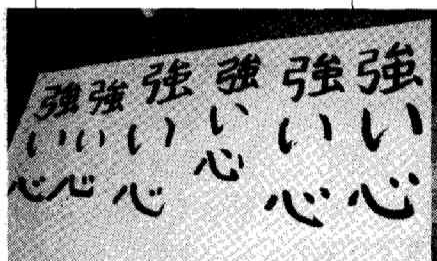 強い心
強い心
強い心
強い心
強い心
強い心